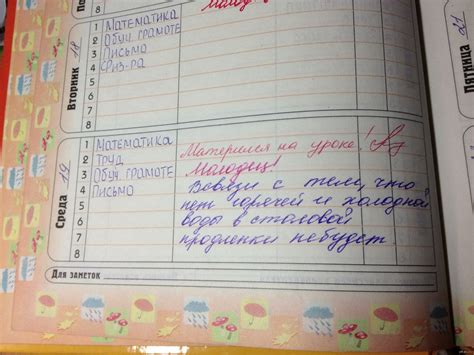 8
Вторник 18
1 Математика
2 Обуч. грамоте
3 Письмо
4 Физ-ра
5
6
7
8
Пятница 21
Среда 19
1 Математика
2 Труд
3 Обуч. грамоте
4 Письмо
5
6
7
8
Матерился на уроке!
Молодец!
Всвязи с тем, что
нет горячей и холодной
воды в столовой
продленки небудет
Для заметок